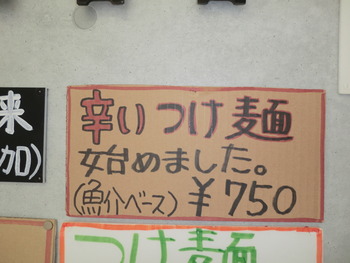 来
加)
辛いつけ麺
始めました。
(魚介ベース) ¥750
つけ麺